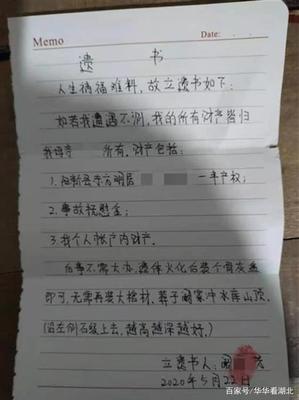 Memo
Date:
遗 书
人生祸福难料，故立遗书如下：
如若我遭遇不测，我的所有财产皆归
我母亲 所有，财产包括：
1. 阳新县东方明居 一半产权；
2. 事故抚恤金；
3. 我个人帐户内财产。
后事不需大办，遗体火化后装个骨灰盒
即可，无需再装大棺材，葬于阚家冲水库山顶，
（沿左侧石级上去，越高越深越好。）
立遗书人：阚
2020年5月22日
百家号/华华看湖北